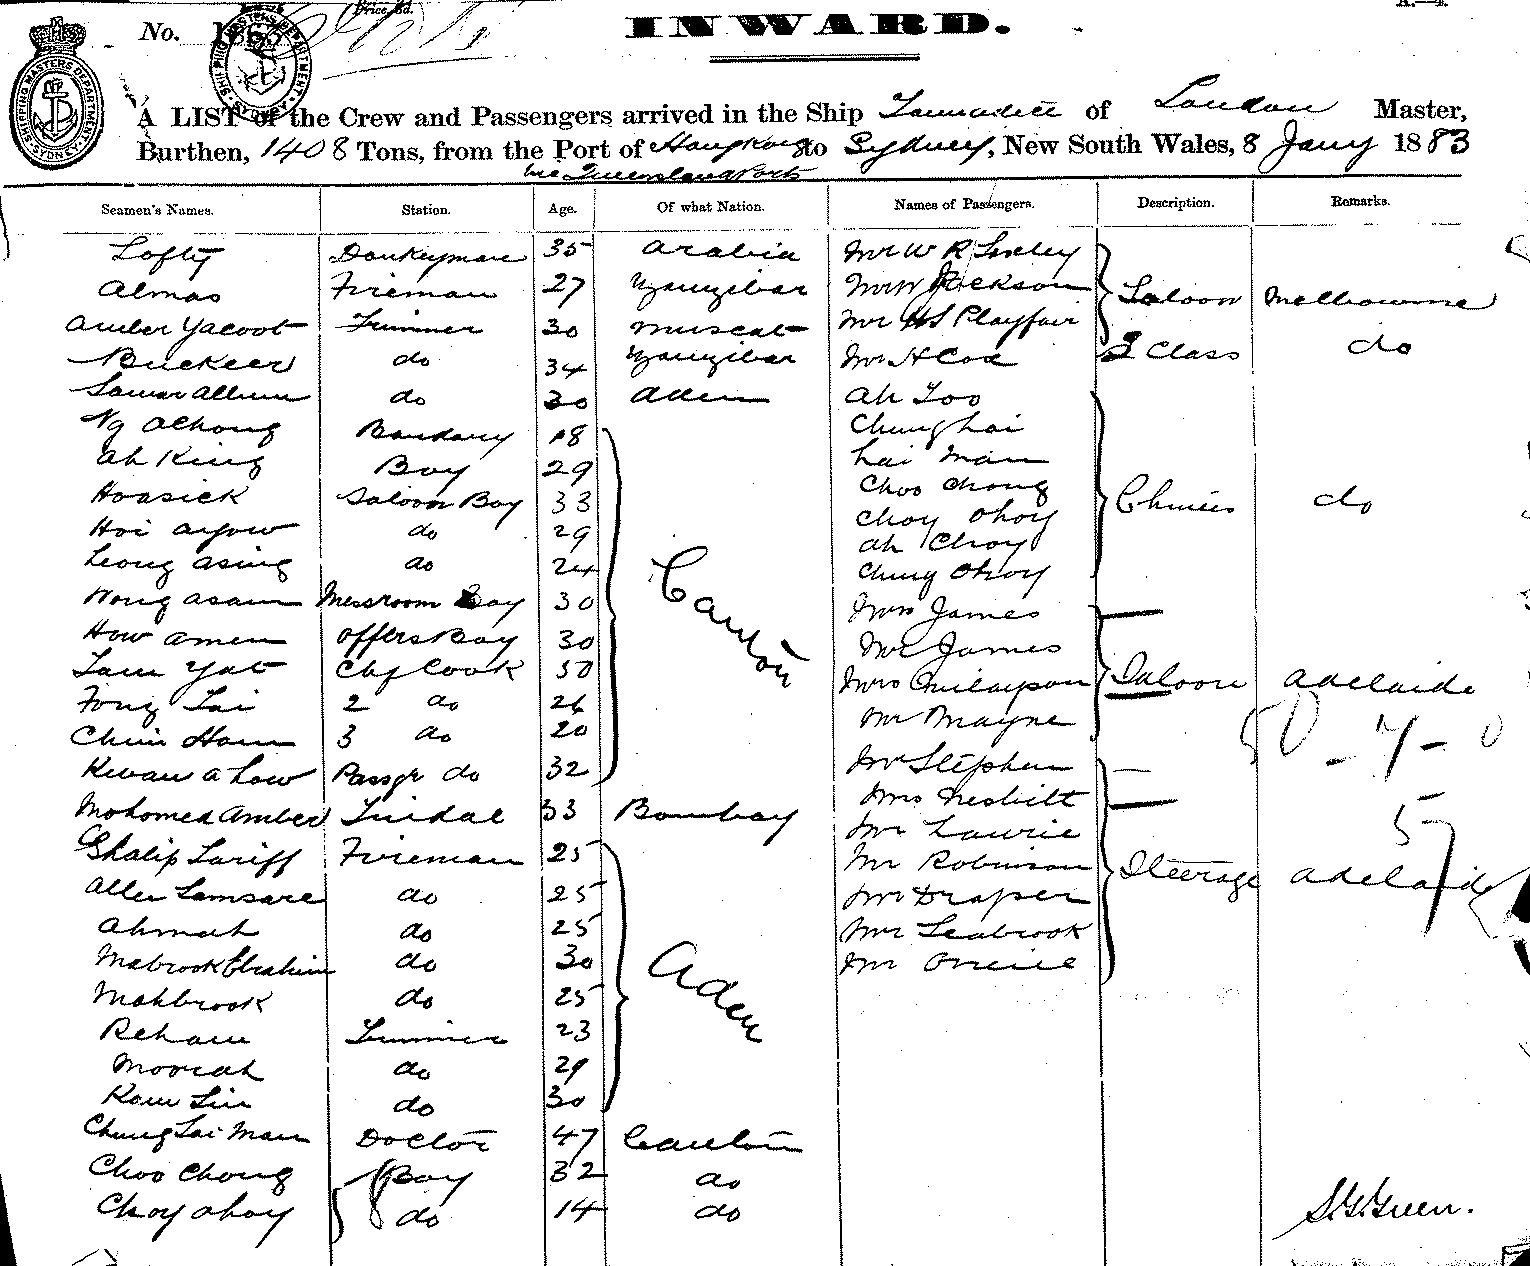 No.
INWARD.
SHIPPING MASTERS DEPARTMENT SYDNEY
A LIST of the Crew and Passengers arrived in the Ship of London Master,
Burthen, 1408 Tons, from the Port of Hong Kong to Sydney, New South Wales, 8 Jany 1883
via Queensland Ports
Seamen's Names. Station. Age. Of what Nation. Names of Passengers. Description. Remarks.
Lofty Donkeyman 35 Arabia Mr W R
Almas Fireman 27 Zanzibar Mr W Jackson Saloon Melbourne
Amber Yacoot Trimmer 30 Muscat Mr HS Playfair
Buckeer do 34 Zanzibar Mr H Cox 2 Class do
do 30 Aden Ah Too
Ng Achong 18 Chung Lai
Ah King Boy 29 Lai Man
Hoasick Saloon Boy 33 Choo Chong Chinese do
Hoi Ayow do 29 Choy Ohoy
Leong Asing do 24 Ah Choy
Canton Chung Ohoy
Wong Asam Messroom Boy 30 Mrs James
How Amen Offers Boy 30 Mr James
Lam Yat Chf Cook 50 Mrs Saloon Adelaide
Fong Tai 2 do 26 Mr Mayne
Chin Hom 3 do 20
Kwan a how Passgr do 32 Mr Stephen
Mohomed Amber Tindal 33 Bombay Mrs Nesbitt
Mr Laurie
Ghalip Tariff Fireman 25 Mr Robinson Steerage Adelaide
do 25 Mr Draper
Ahmah do 25 Mr Seabrook
Mabrook Ebrahim do 30 Aden Mr Oneile
Mahbrook do 25
Reham Trimmer 23
Mooriah do 29
Kam Sin do 30
Chung Lai Man Doctor 47 Canton
Choo Chong Boy 32 do
Choy Ohoy do 14 do